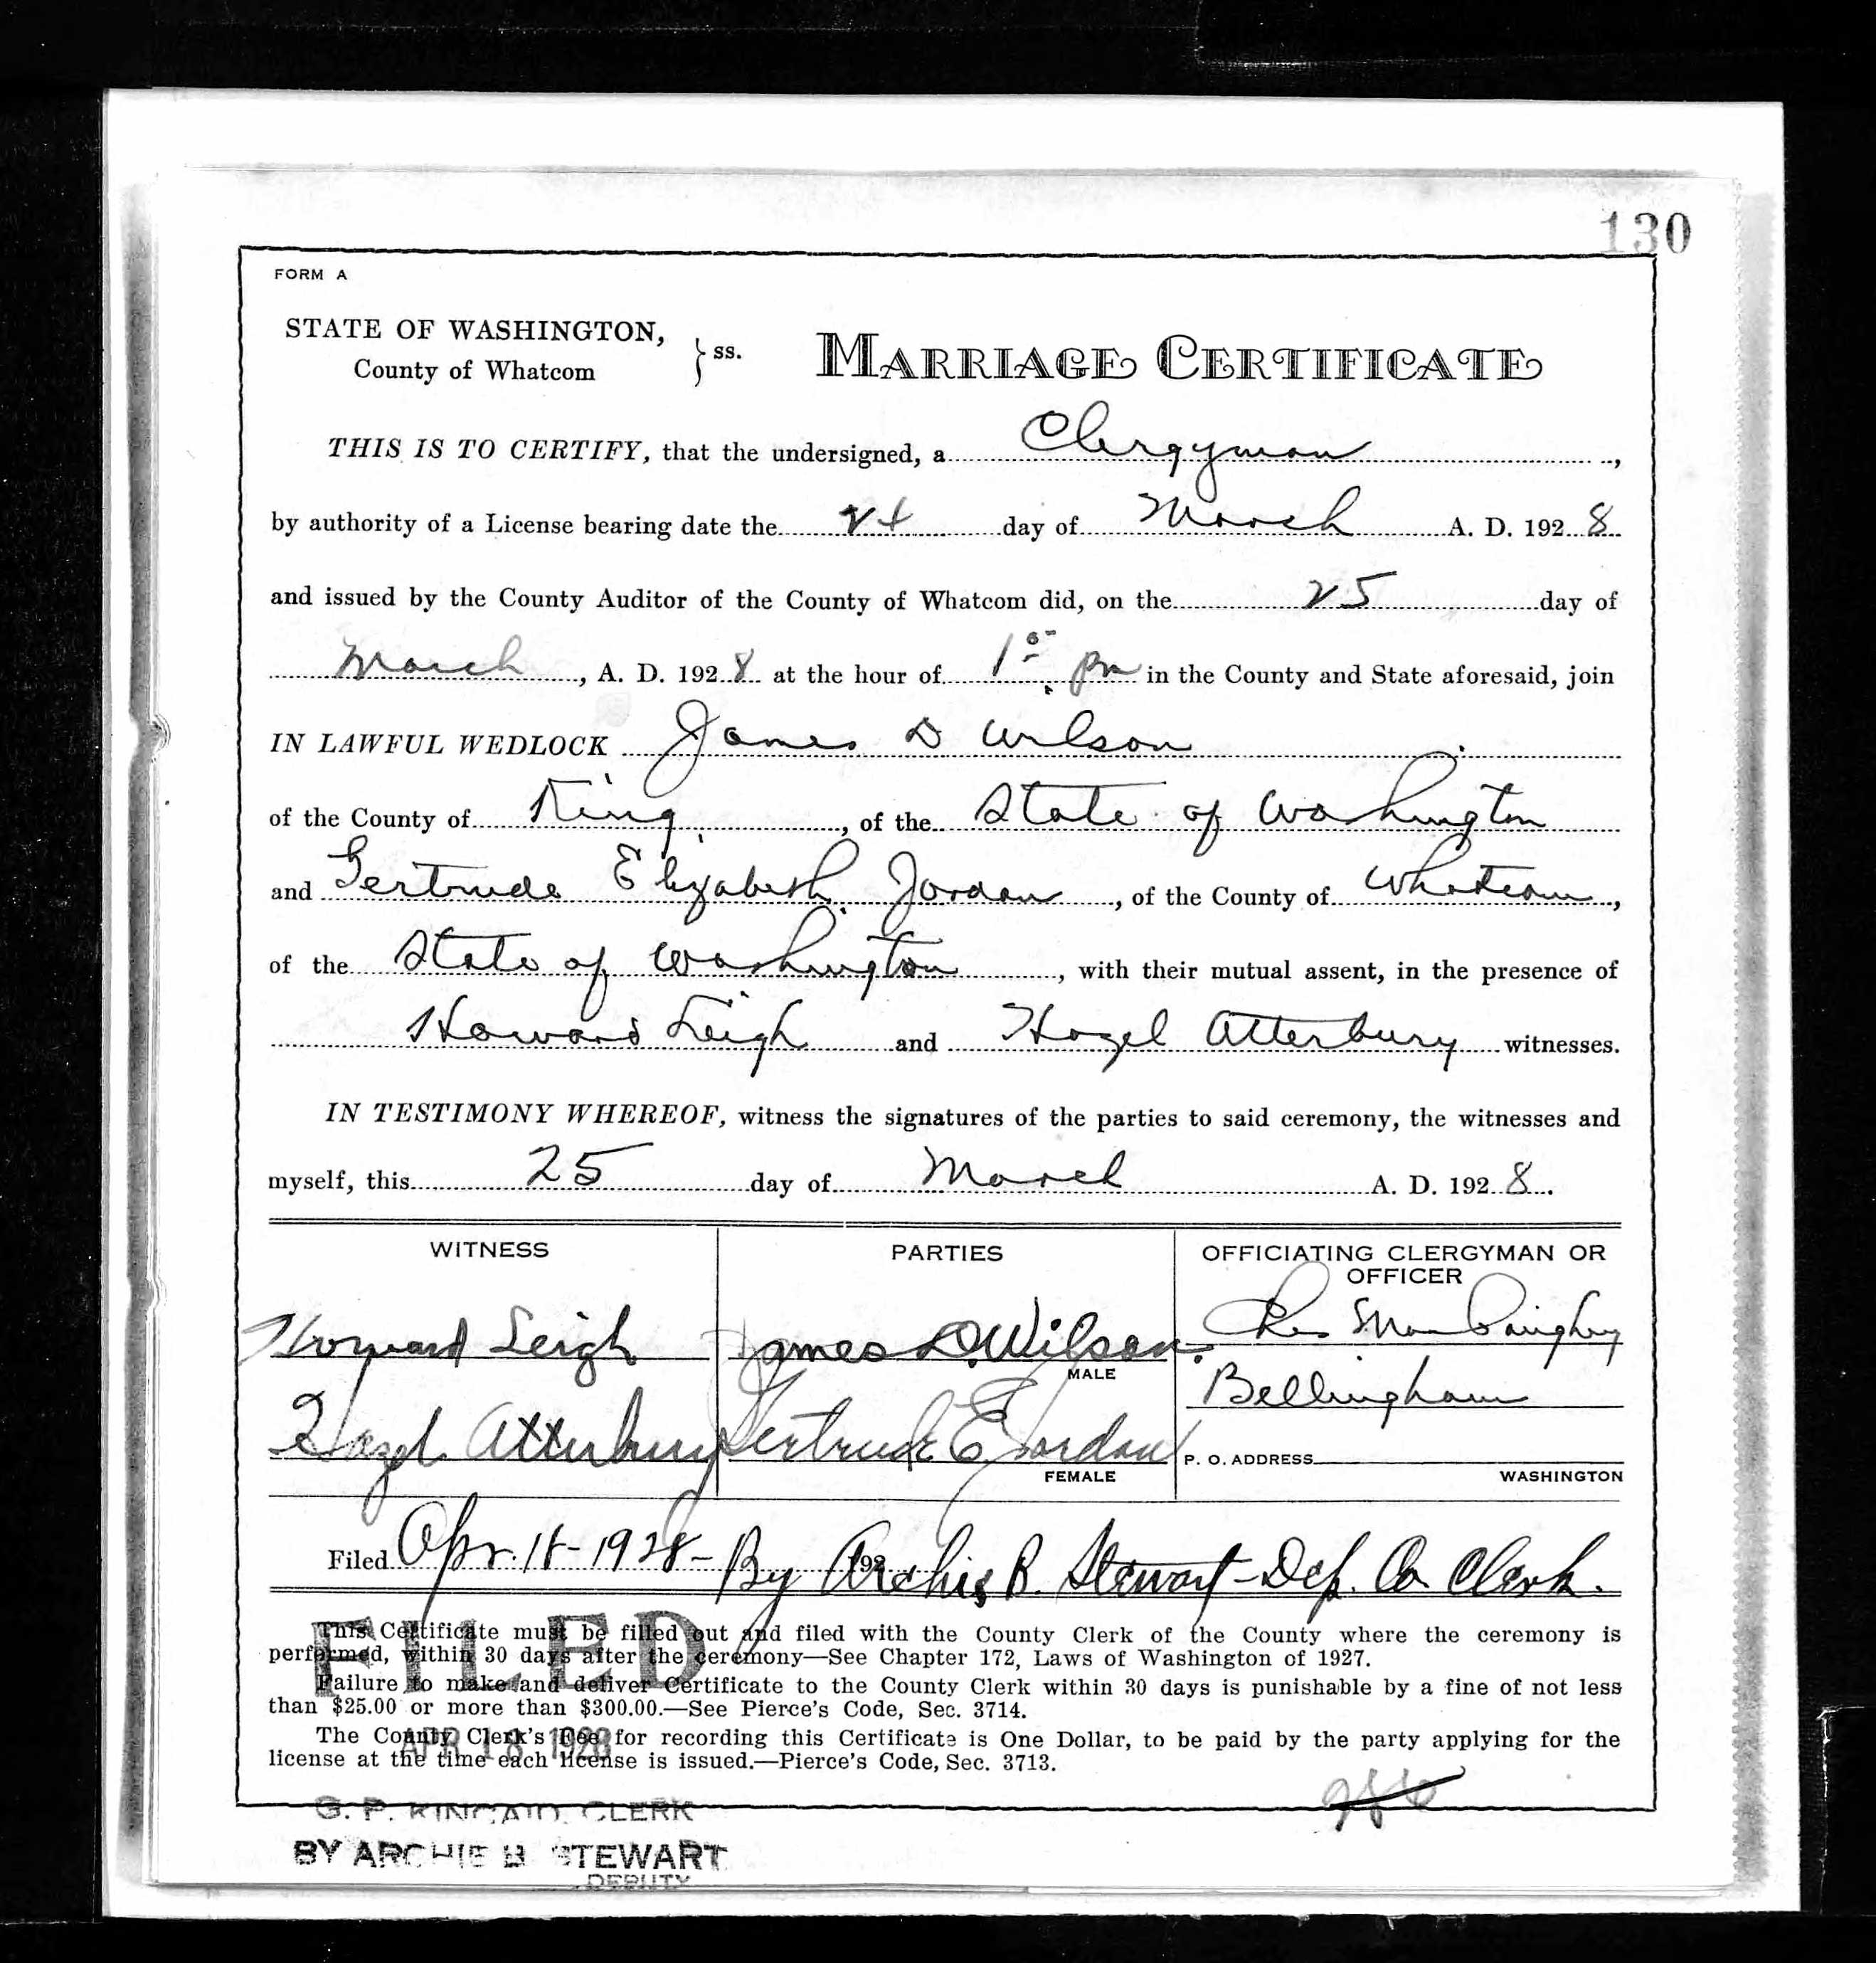 130
FORM A
STATE OF WASHINGTON,
County of Whatcom
} ss.
MARRIAGE CERTIFICATE
THIS IS TO CERTIFY, that the undersigned, a Clergyman,
by authority of a License bearing date the 24 day of March A. D. 1928
and issued by the County Auditor of the County of Whatcom did, on the 25 day of
March, A. D. 1928 at the hour of 1:00 pm in the County and State aforesaid, join
IN LAWFUL WEDLOCK James D Wilson
of the County of King, of the State of Washington
and Gertrude Elizabeth Jordan, of the County of Whatcom,
of the State of Washington, with their mutual assent, in the presence of
Howard Leigh and Hazel Atterbury witnesses.
IN TESTIMONY WHEREOF, witness the signatures of the parties to said ceremony, the witnesses and
myself, this 25 day of March A. D. 1928.
WITNESS
Howard Leigh
Hazel Atterbury
PARTIES
James D. Wilson.
MALE
Gertrude E. Jordan
FEMALE
OFFICIATING CLERGYMAN OR
OFFICER
Bellingham
P. O. ADDRESS
WASHINGTON
Filed Apr. 18-1928- 192 By Archie B. Stewart-Dep. Co. Clerk.
This Certificate must be filled out and filed with the County Clerk of the County where the ceremony is
performed, within 30 days after the ceremony—See Chapter 172, Laws of Washington of 1927.
Failure to make and deliver Certificate to the County Clerk within 30 days is punishable by a fine of not less
than $25.00 or more than $300.00.—See Pierce's Code, Sec. 3714.
The County Clerk's Fee for recording this Certificate is One Dollar, to be paid by the party applying for the
license at the time each license is issued.—Pierce's Code, Sec. 3713.
FILED
APR 18 1928
G. P. KINCAID, CLERK
BY ARCHIE B STEWART
DEPUTY